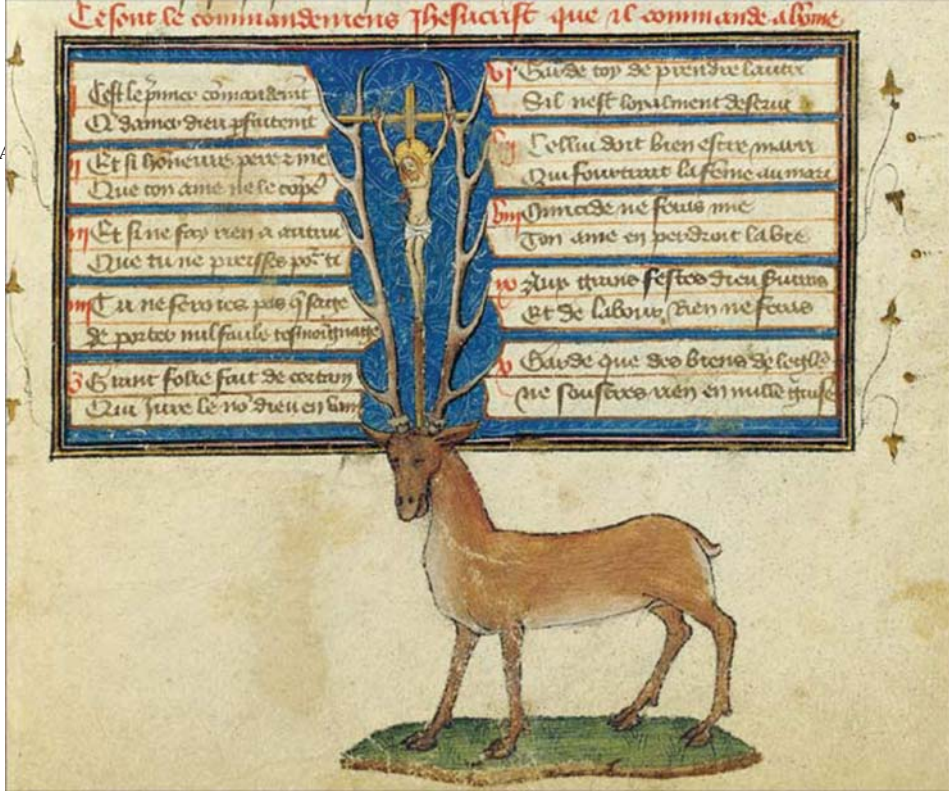 Ce sont le commandemens Jhesucrist que il commande a lome
j Cest le pmier cōmandemt
Q damer dieu pfaitemt
ij Et si honneure pere z me
Que ton ame ne le cōpe
iij Et si ne fay rien a autrui
Que tu ne preisses por ti
iiij Tu ne feroies pas q sage
de porter nul faulx tesmoignage
v Grant folie fait de certain
Qui Jure le nō dieu en vain
vj Garde toy de prendre lautrui
Sil nest loyalment deservi
vij Celluy doit bien estre marri
Qui fourtrait la feme au mari
viij Omicide ne feras mie
Ton ame en perdroit la vie
ix Aux grans festes dieu
Et de labour Rien ne feras
x Garde que des biens de leglise
ne soustres rien en nulle guise